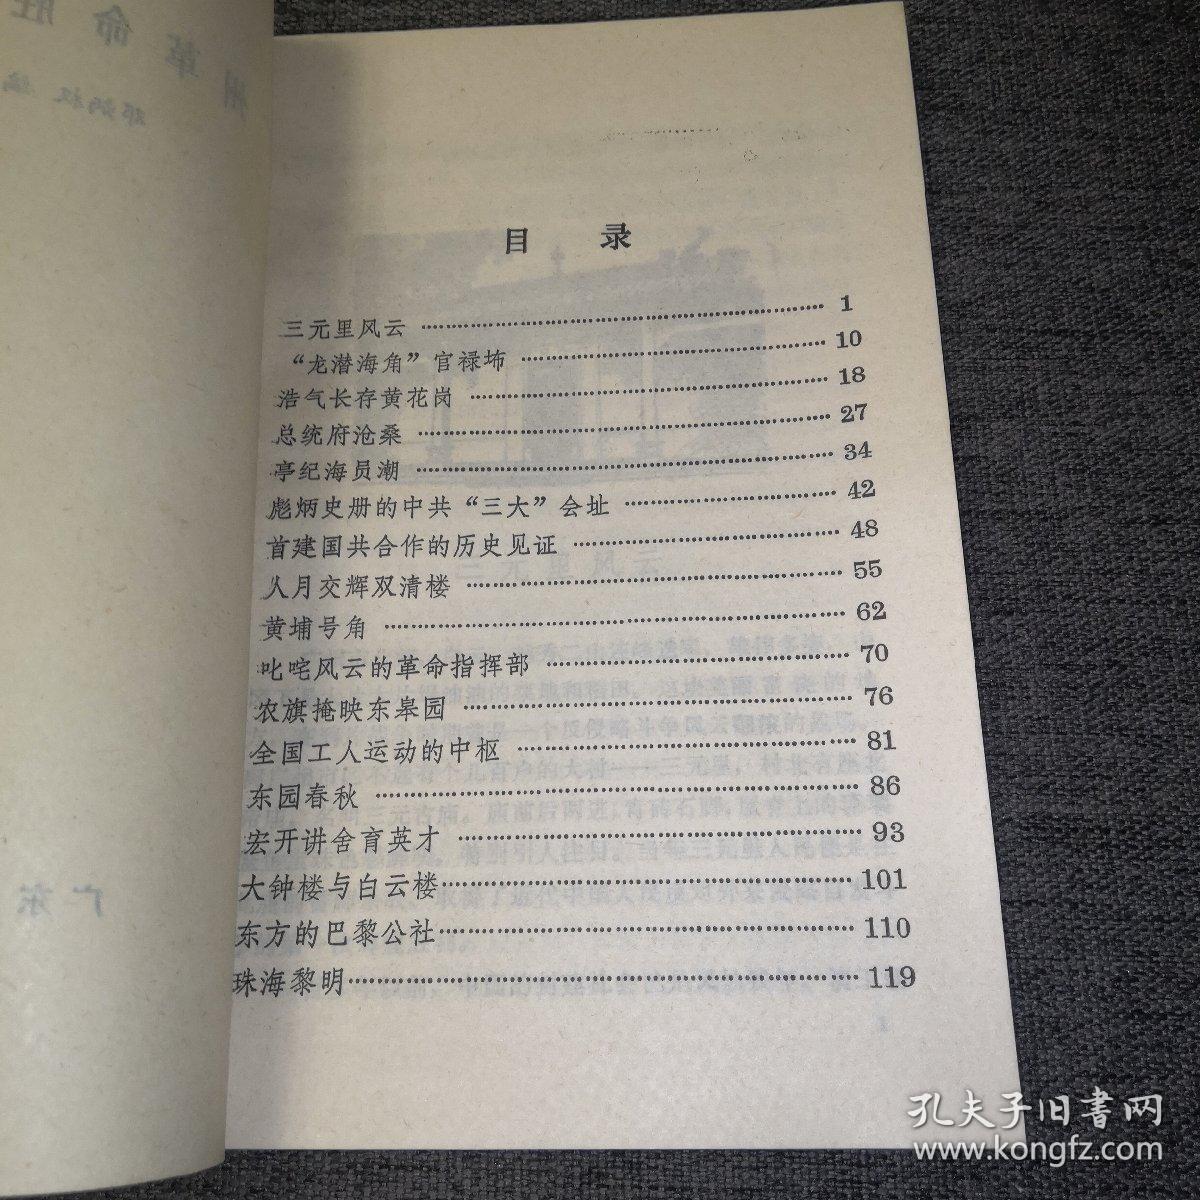 目 录
三元里风云 1
“龙潜海角”官禄㘵 10
浩气长存黄花岗 18
总统府沧桑 27
亭纪海员潮 34
彪炳史册的中共“三大”会址 42
首建国共合作的历史见证 48
人月交辉双清楼 55
黄埔号角 62
叱咤风云的革命指挥部 70
农旗掩映东皋园 76
全国工人运动的中枢 81
东园春秋 86
宏开讲舍育英才 93
大钟楼与白云楼 101
东方的巴黎公社 110
珠海黎明 119
孔夫子旧書网
www.kongfz.com